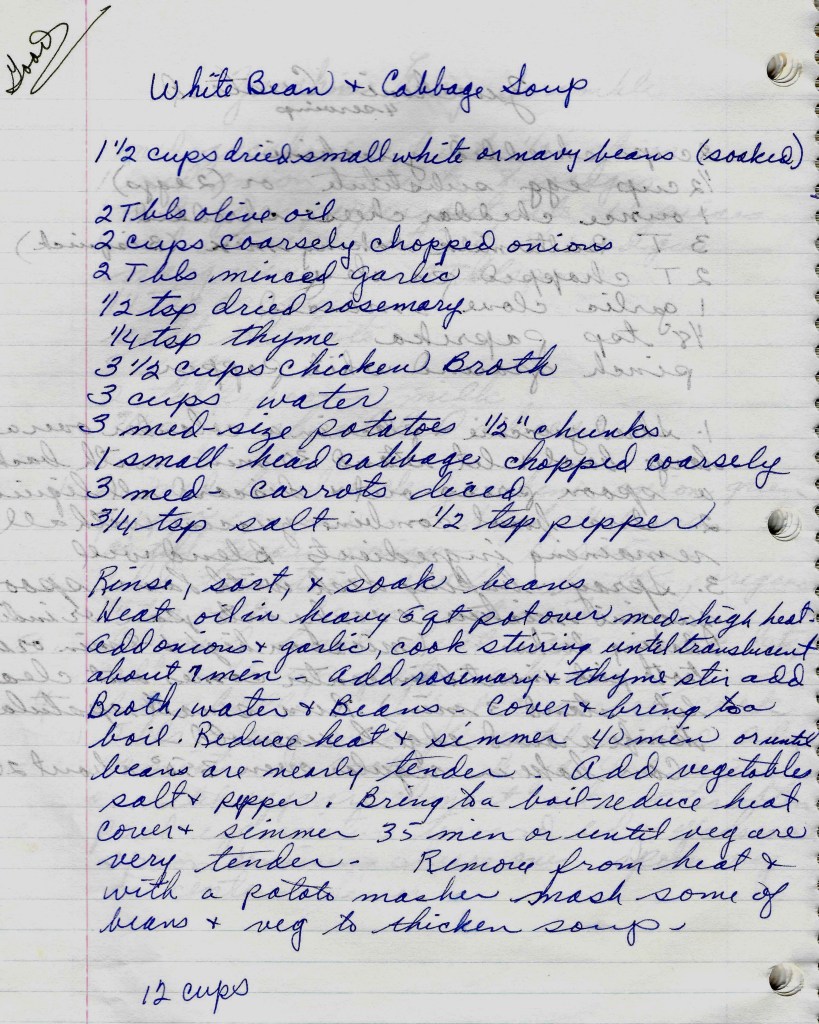 Good
White Bean + Cabbage Soup
1 1/2 cups dried small white or navy beans (soaked)
2 Tbls olive oil
2 cups coarsely chopped onions
2 Tbls minced garlic
1/2 tsp dried rosemary
1/4 tsp thyme
3 1/2 cups chicken Broth
3 cups water
3 med-size potatoes 1/2" chunks
1 small head cabbage chopped coarsely
3 med- carrots diced
3/4 tsp salt 1/2 tsp pepper
Rinse, sort, + soak beans
Heat oil in heavy qt pot over med-high heat.
Add onions + garlic, cook stirring until translucent
about 7 min - Add rosemary + thyme stir add
Broth, water + Beans - Cover + bring to a
boil. Reduce heat + simmer 40 min or until
beans are nearly tender. Add vegetables
salt + pepper. Bring to a boil-reduce heat
cover + simmer 35 min or until veg are
very tender - Remove from heat +
with a potato masher mash some of
beans + veg to thicken soup.
12 cups